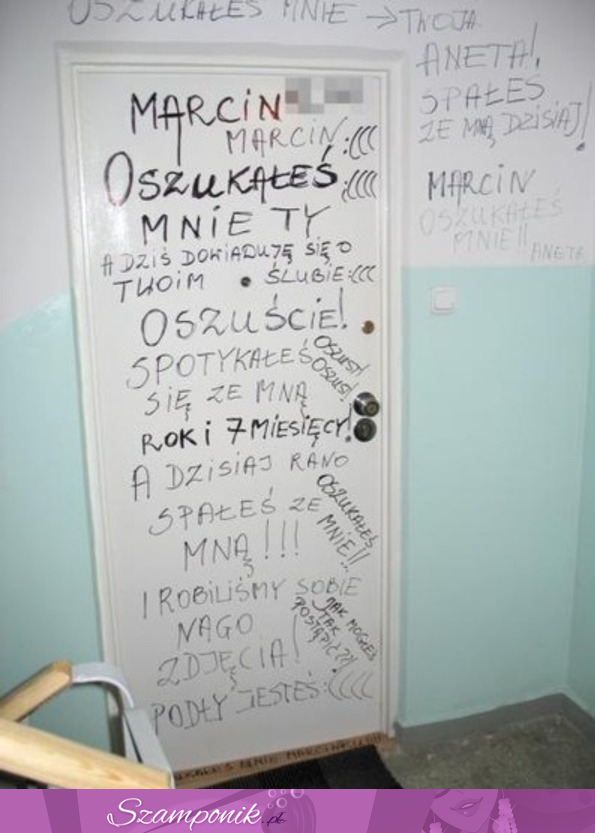 OSZUKAŁEŚ MNIE → TWOJA
ANETA!,
SPAŁEŚ
ZE MNĄ DZISIAJ!
MARCIN
OSZUKAŁEŚ
MNIE!!
ANETA
MARCIN
MARCIN :(((
OSZUKAŁEŚ :((((
MNIE TY
A DZIŚ DOWIADUJĘ SIĘ O
TWOIM ŚLUBIE :(((
OSZUŚCIE!
SPOTYKAŁEŚ
SIĘ ZE MNĄ
OSZUST!
OSZUST!
ROK I 7 MIESIĘCY!
A DZISIAJ RANO
SPAŁEŚ ZE
MNĄ!!!
OSZUKAŁEŚ
MNIE!!
I ROBILIŚMY SOBIE
NAGO
ZDJĘCIA!
JAK MOGŁEŚ
TAK
POSTĄPIĆ??!
PODŁY JESTEŚ :((((
MNIE
Szamponik.pl